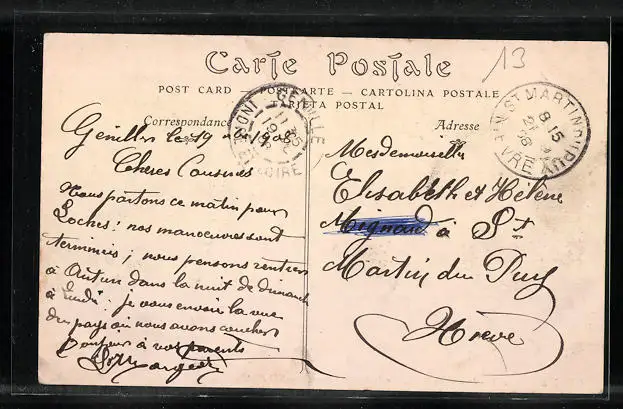 13
Carte Postale
POST CARD — POSTKARTE — CARTOLINA POSTALE
TARJETA POSTAL
Correspondance
Adresse
GENILLÉ
11 35
19
INDRE ET LOIRE
ST MARTIN DU PUY
8 15
21
NIÈVRE
Genillé le 19 1908
Chères Cousines
Nous partons ce matin pour
Loches : nos manoeuvres sont
terminées ; nous pensons rentrer
à Autun dans la nuit de dimanche
à lundi. je vous envoie la vue
du pays où nous avons couché
Bonjour à vos parents
Mesdemoiselles
Elisabeth et Hélène
Mignard à St
Martin du Puy
Nièvre